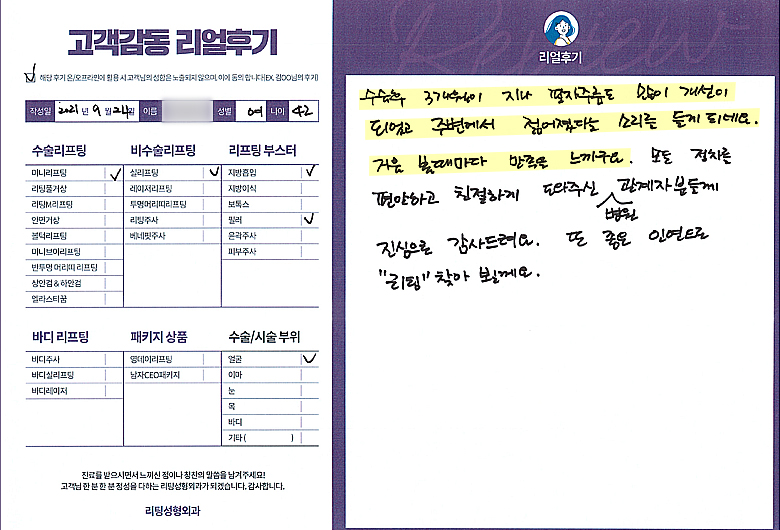 고객감동 리얼후기
해당 후기 온/오프라인에 활용 시 고객님의 성함은 노출되지 않으며, 이에 동의 합니다(EX, 김OO님의 후기)
작성일 2021년 9월 24일 이름 성별 여 나이 42
수술리프팅
미니리프팅
리팅풀거상
리팅M리프팅
안면거상
볼턱리프팅
미니브이리프팅
반투명 머리띠 리프팅
상안검 & 하안검
엘라스티꿈
비수술리프팅
실리프팅
레이저리프팅
투명머리띠리프팅
리팅주사
베네핏주사
리프팅 부스터
지방흡입
지방이식
보톡스
필러
윤곽주사
피부주사
바디 리프팅
바디주사
바디실리프팅
바디레이저
패키지 상품
영데이리프팅
남자CEO패키지
수술/시술 부위
얼굴
이마
눈
목
바디
기타 ( )
진료를 받으시면서 느끼신 점이나 칭찬의 말씀을 남겨주세요!
고객님 한 분 한 분 정성을 다하는 리팅성형외과가 되겠습니다. 감사합니다.
리팅성형외과
Review
리얼후기
수술후 3개월이 지나 팔자주름도 많이 개선이
되었고 주변에서 젊어졌다는 소리를 듣게 되네요.
거울 볼때마다 만족을 느끼구요. 모든 절차를
편안하고 친절하게 도와주신 병원 관계자분들께
진심으로 감사드려요. 또 좋은 인연으로
"리팅" 찾아 뵐께요.